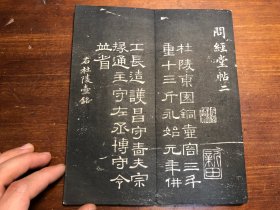 問經堂帖二
杜陵東園銅壺容三斗
重十三斤永始元年供
工長造護昌守嗇夫宗
掾通主守左丞博守令
並省
右杜陵壺銘